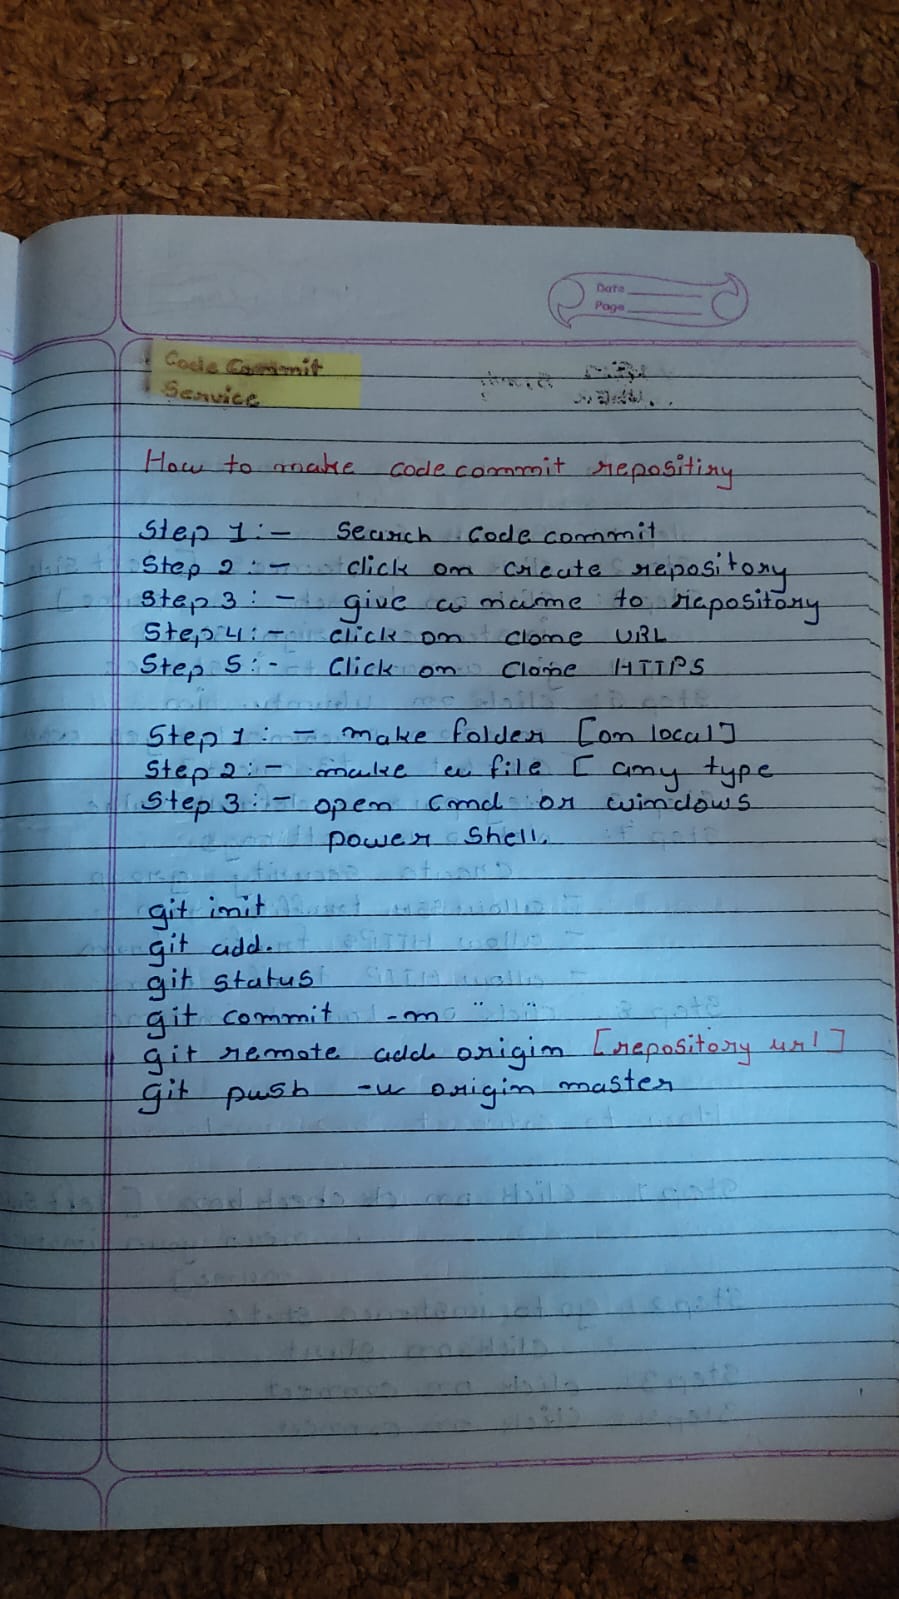 Date
Page
Code Commit
Service
How to make code commit repositiry
Step 1:- Search Code commit
Step 2:- click on create repository
Step 3:- give a name to repository
Step 4:- click on clone URL
Step 5:- Click on Clone HTTPS
Step 1:- make folder [on local]
Step 2:- make a file [ any type
Step 3:- open cmd or windows
power shell.
git init
git add.
git status
git commit -m " "
git remote add origin [repository url]
git push -u origin master